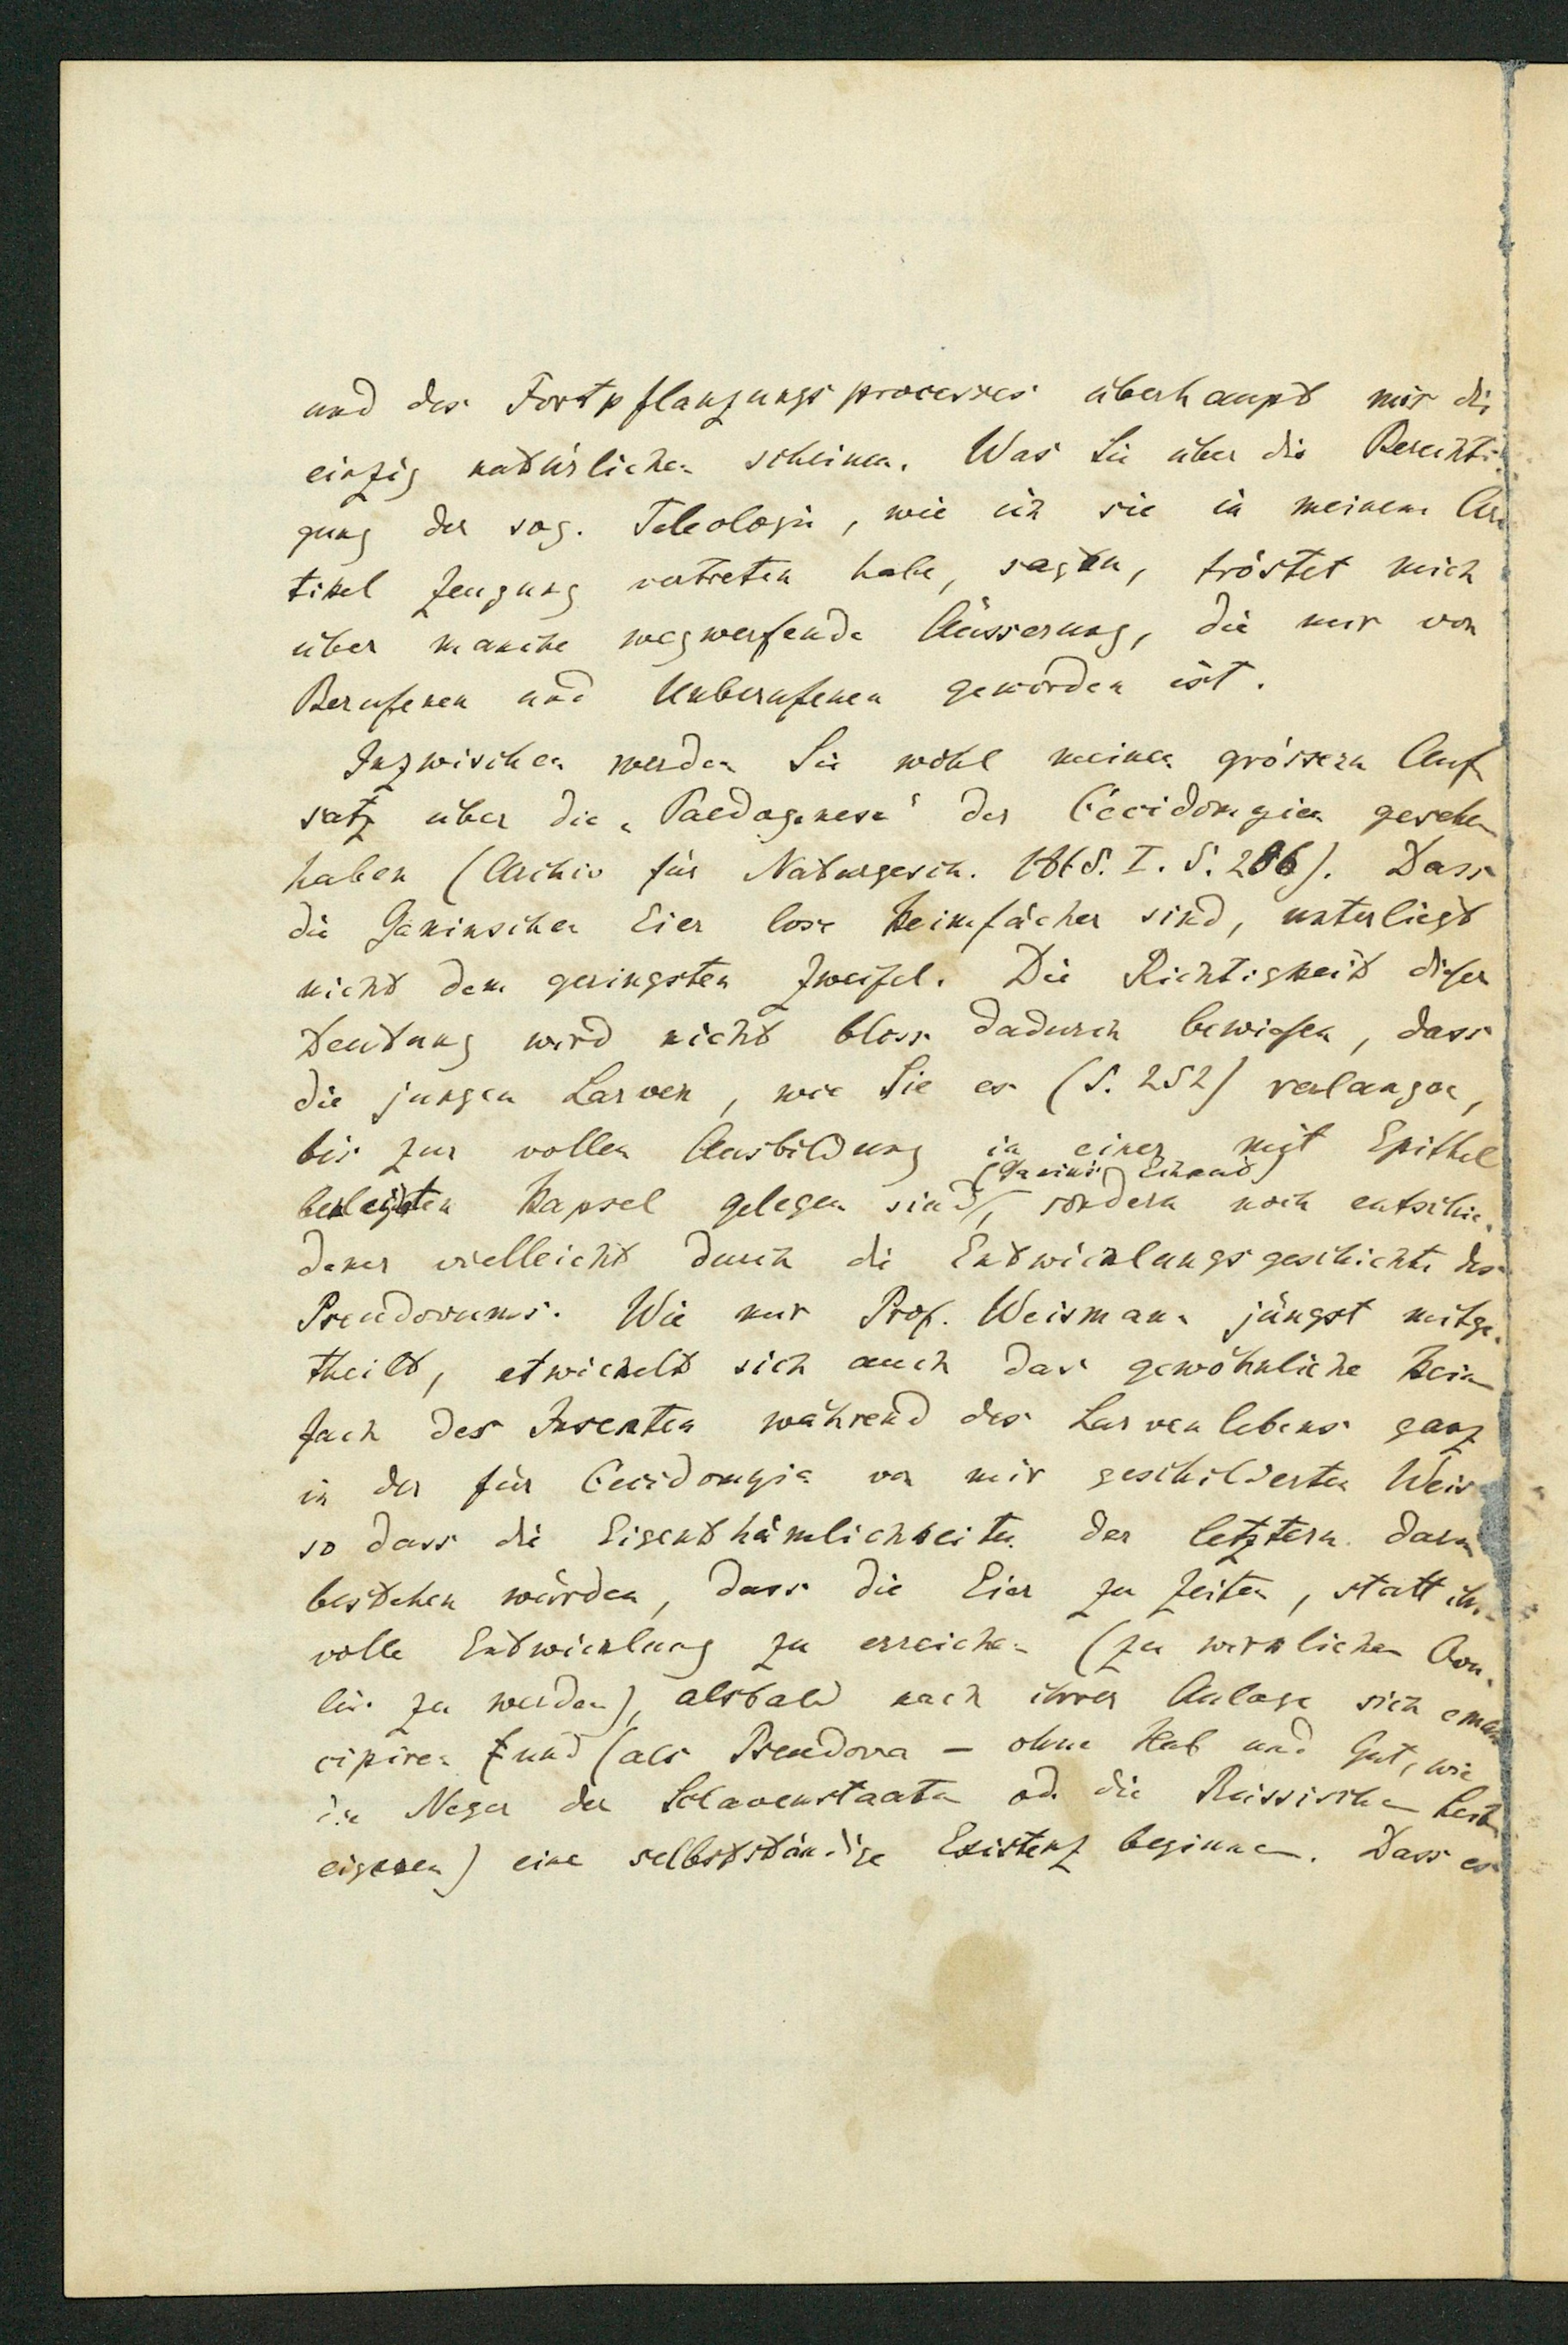 und des Fortpflanzungsprocesses überhaupt mir die
einzig natürlichen scheinen. Was Sie über die Berechti-
gung der sog. Teleologie, wie ich sie in meinem Ar
tikel Zeugung vertreten habe, sagen, tröstet mich
über manche wegwerfende Äusserung, die mir von
Berufenen und Unberufenen geworden ist.
Inzwischen werden Sie wohl meinen grössern Auf
satz über die „Paedogenese“ der Cecidomyien gesehen
haben (Archiv für Naturgesch. 1865. I. S. 286). Dass
die Ganinschen Eier lose Keimfächer sind, unterliegt
nicht dem geringsten Zweifel. Die Richtigkeit dieser
Deutung wird nicht bloss dadurch bewiesen, dass
die jungen Larven, wie Sie es (S. 252) verlangen,
bis zur vollen Ausbildung in einer mit Epithel
(Ganins Eihaut)
bekleideten Kapsel gelegen sind, sondern noch entschie-
dener vielleicht durch die Entwicklungsgeschichte des
Pseudovums. Wie mir Prof. Weismann jüngst mitge-
theilt, etwickelt sich auch das gewöhnliche Keim
fach des Insekten während des Larvenlebens ganz
in der für Cecidomyia von mir geschilderten Weise
so dass die Eigenthümlichkeiten der letztern darin
bestehen würden, dass die Eier zu Zeiten, statt ihre
volle Entwicklung zu erreichen (zu wirklichen Ovu-
lis zu werden), alsbald nach ihrer Anlage sich eman
cipiren und (als Pseudova – ohne Hab und Gut, wie
die Neger der Sclavenstaaten od. die Russischen Leib
eigenen) eine selbstständige Existenz beginnen. Dass es